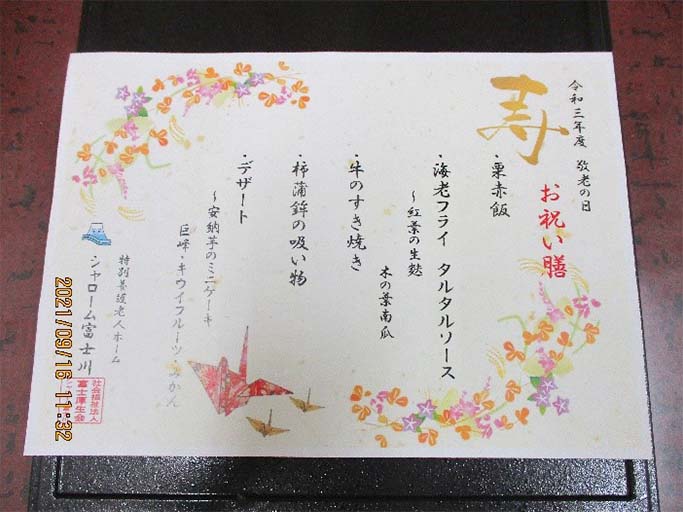 寿
令和三年度 敬老の日
お祝い膳
・栗赤飯
・海老フライ タルタルソース
～紅葉の生麩
木の葉南瓜
・牛のすき焼き
・柿蒲鉾の吸い物
・デザート
～安納芋のミニケーキ
巨峰・キウイフルーツ・みかん
特別養護老人ホーム
シャローム富士川
社会福祉法人
富士厚生会
2021/09/16 11:32